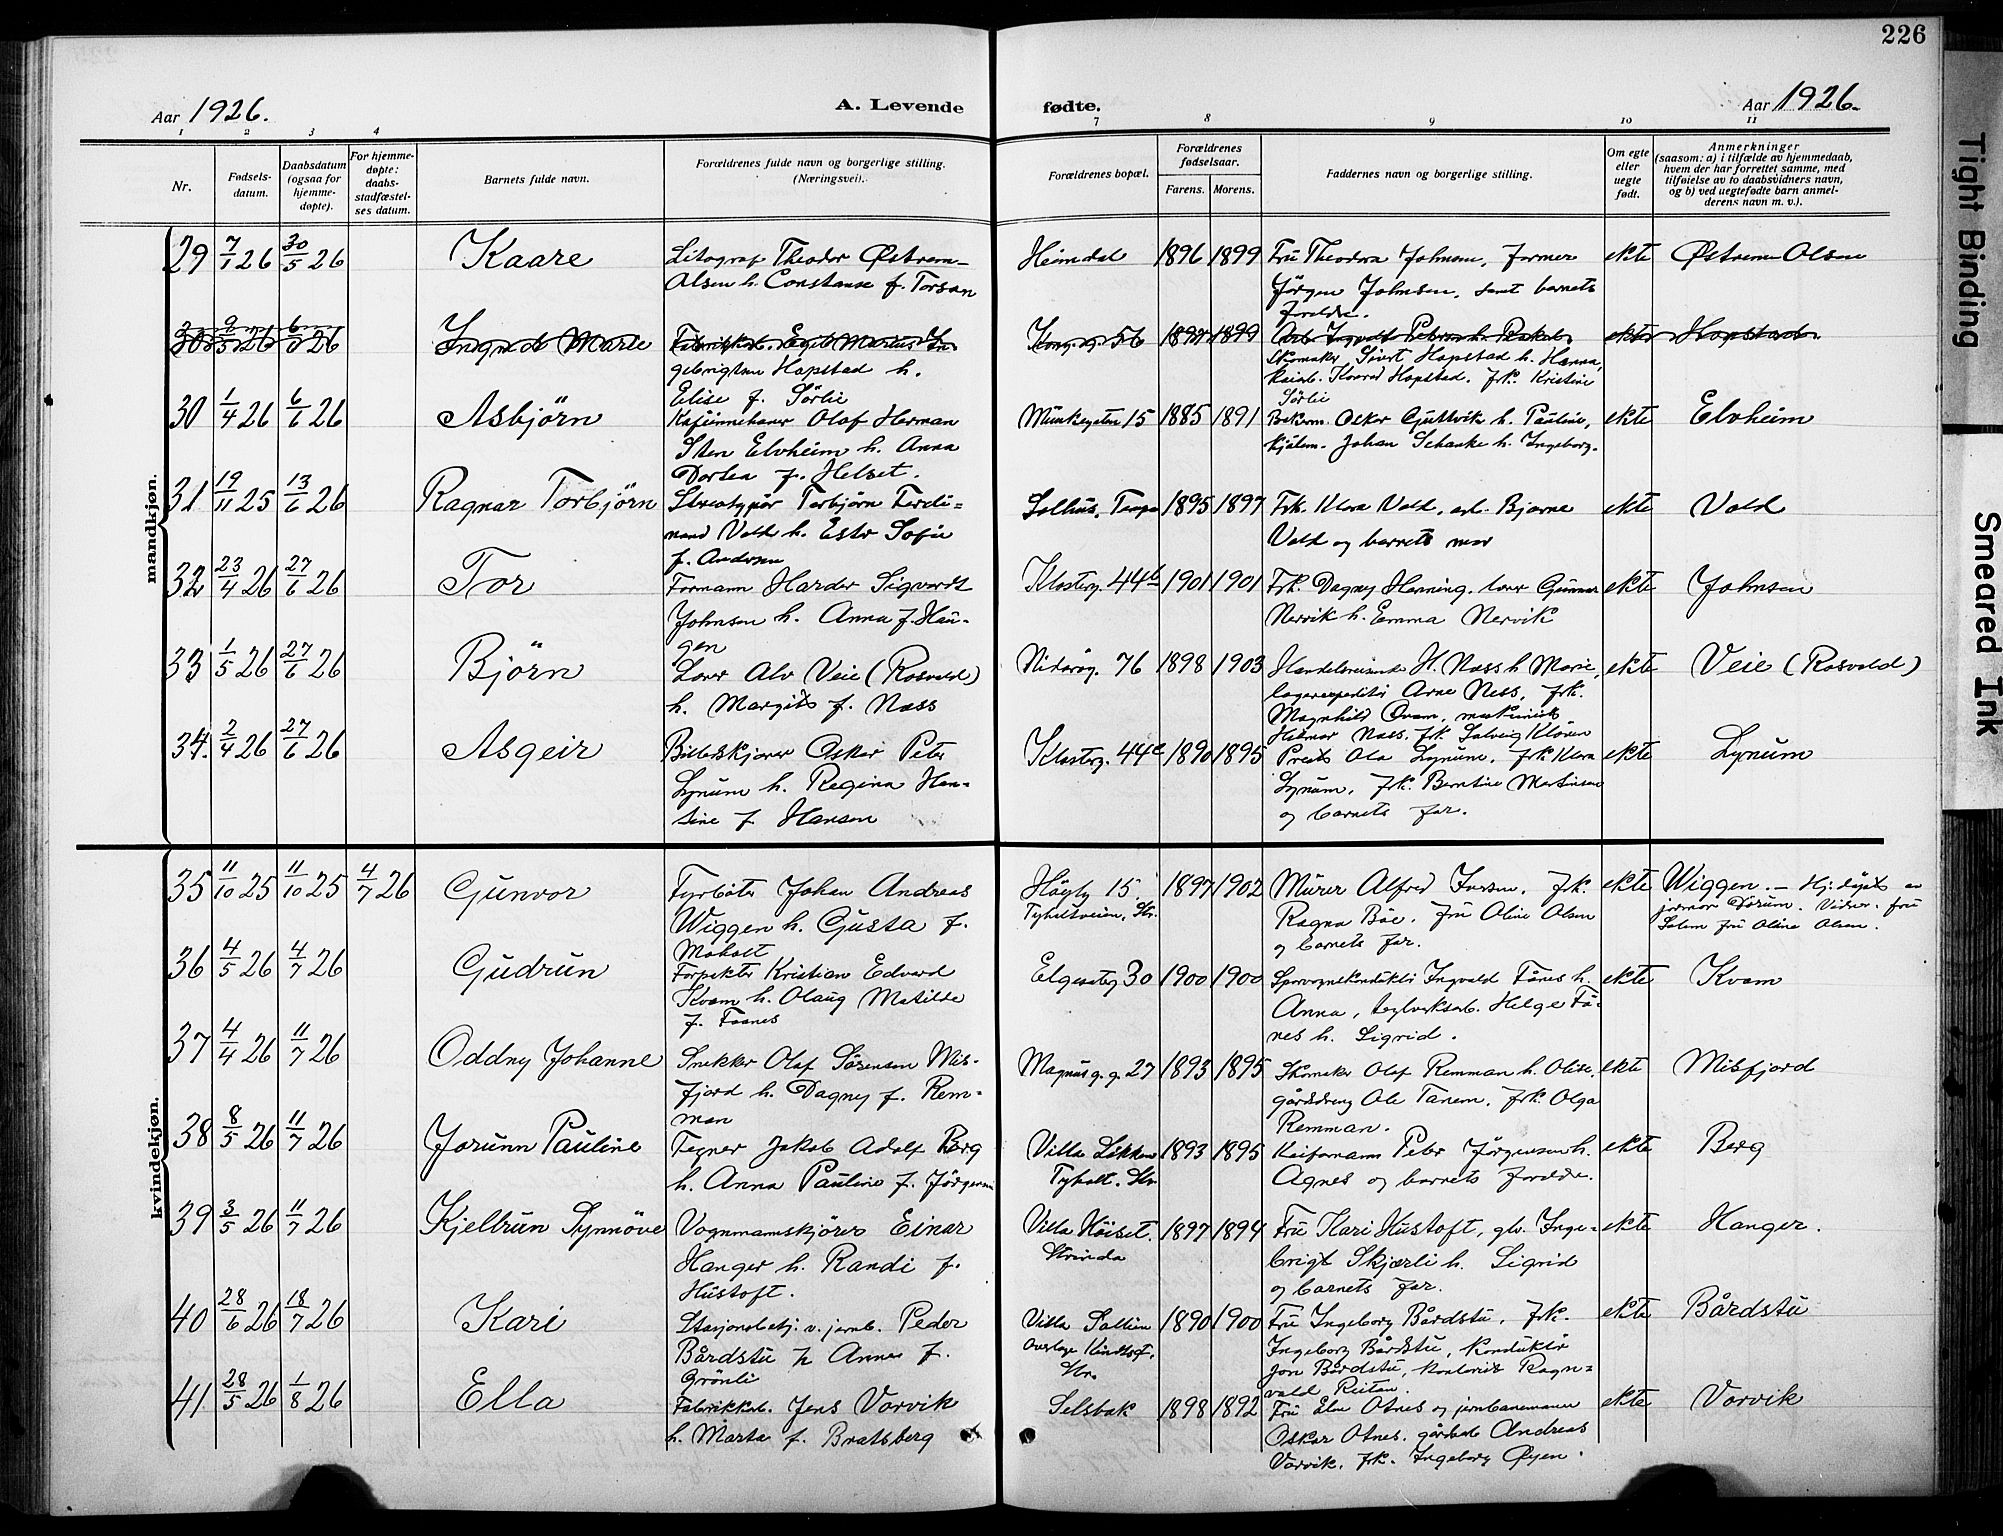 226
Aar 1926.
A. Levende
fødte.
Aar 1926.
1 2 3 4
7 8 9 10 11
Nr.
Fødsels-
datum.
Daabsdatum
(ogsaa for
hjemme-
døpte).
For hjemme-
døpte:
daabs-
stadfæstel-
ses datum.
Barnets fulde navn.
Forældrenes fulde navn og borgerlige stilling.
(Næringsvei).
Forældrenes bopæl.
Forældrenes
fødselsaar.
Farens. Morens.
Faddernes navn og borgerlige stilling.
Om egte
eller
uegte
født.
Anmerkninger
(saasom: a) i tilfælde av hjemmedaab,
hvem der har forrettet samme, med
tilføielse av to daabsvidners navn,
og b) ved uegtefødte barn anmel-
derens navn m. v.).
mandkjøn.
29 7/1 26 30/5 26 Kaare
Litograf Theodor Østrem-
Olsen h. Constanse f. Torsen
Heimdal 1896 1899
Fru Theodora Johnsen, former
Jörgen Johnsen, samt barnets
foreldre.
ekte Østrem-Olsen
30 9/5 26 6/6 26 Marie
gebrigtsen Hopstad h.
Elise f. Sörlie
56 1899
Skomaker Sivert Hopstad h. Hanna,
Konrad Hopstad. frk. Kristine
Sörlie
ekte Hopstad
30 1/4 26 6/6 26 Asbjörn
Kafeinnehaver Olaf Herman
Sten Elvheim h. Anna
Dortea f. Helset.
Munkegaten 15 1885 1891
Oskar Guttvik h. Pauline,
Johan Schanke h. Ingeborg.
ekte Elvheim
31 19/11 25 13/6 26 Ragnar Torbjörn
Stereotypör Torbjörn Ferdi-
nand Vold h. Ester Sofie
f. Andersen
Solhus, Tempe 1895 1897
Frk. Klara Vold, arb. Bjarne
Vold og barnets mor
ekte Vold
32 23/4 26 27/6 26 Tor
Formann Harder Sigvardt
Johnsen h. Anna f. Hau-
gen
Klosterg. 44b 1901 1901
Frk. Dagny Henning. Gunnar
Nervik h. Emma Nervik
ekte Johnsen
33 1/5 26 27/6 26 Björn
Alv Veie (Rosvold)
h. Margit f. Næss
Nidarög. 76 1898 1903
Handelsreisende H. Næss h. Marie,
lagerexpeditör Arne Ness, frk.
Magnhild Kvam, maskinist
Helmer Næss, frk. Solveig
ekte Veie (Rosvold)
34. 2/4 26 27/6 26 Asgeir
Bilskjörer Oskar Peter
Lynum h. Regina Han-
sine f. Hansen
Klosterg. 44c 1890 1895
Ola Lynum, frk. Klara
Lynum, frk. Berntine Martinsen
og barnets far.
ekte Lynum
kvindekjøn.
35 11/10 25 11/10 25 4/7 26 Gunvor
Fyrböter Johan Andreas
Wiggen h. Gusta f.
Moholt
Högly 15
Tyholtveien, Str. 1897 1902
Murer Alfred Iversen, frk.
Ragna Böe. Fru Oline Olsen
og barnets far.
ekte Wiggen. – Hj. döpt av
jormor Forum. Vidner: fru
Salem fru Oline Olsen.
36 4/5 26 4/7 26 Gudrun
Forpakter Kristian Edvard
Kvam h. Olaug Matilde
f. Faanes
Elgesæterg 30 1900 1900
Sporvognskonduktör Ingvald Fånes h.
Anna, teglverksarb. Helge Få-
nes h. Sigrid.
ekte Kvam
37 4/4 26 11/7 26 Oddny Johanne
Snekker Olaf Sörensen Mis-
fjord h. Dagny f. Rem-
man
Magnus g. g. 27 1893 1895
Skomaker Olaf Remman h. Olise,
gårdsdreng Ole Tanem, frk. Olga
Remman.
ekte Misfjord
38 8/5 26 11/7 26 Jorunn Pauline
Tegner Jakob Adolf Berg
h. Anna Pauline f. Jörgensen
Villa Lökken
Tyholt. Str. 1893 1895
Kaiformann Peter Jörgensen h.
Agnes og barnets foreldre.
ekte Berg
39 3/5 26 11/7 26 Kjellrun Synnöve
Vognmannskjörer Einar
Hanger h. Randi f.
Hustoft.
Villa Höiset.
Strinda 1897 1894
Fru Kari Hustoft, glv. Inge-
brigt Skjærli h. Sigrid
og barnets far.
ekte Hanger.
40 28/6 26 18/7 26 Kari
Stasjonsbetj. v. jernb. Peder
Bårdstu h Anne f.
Grönli
Villa Solliden
Str. 1890 1900
Fru Ingeborg Bårdstu, frk.
Ingeborg Bårdstu, konduktör
Jon Bårdstu, kontorist Ragn-
vald Reitan.
ekte Bårdstu
41 28/5 26 1/8 26 Ella
Fabrikkarb. Jens Vorvik
h. Marta f. Bratsberg
Selsbak 1898 1892
Fru Otnes og jernbanemann
Oskar Otnes, gårdarb Andreas
Vorvik, frk. Ingeborg Öyen.
ekte Vorvik
Tight Binding
Smeared Ink